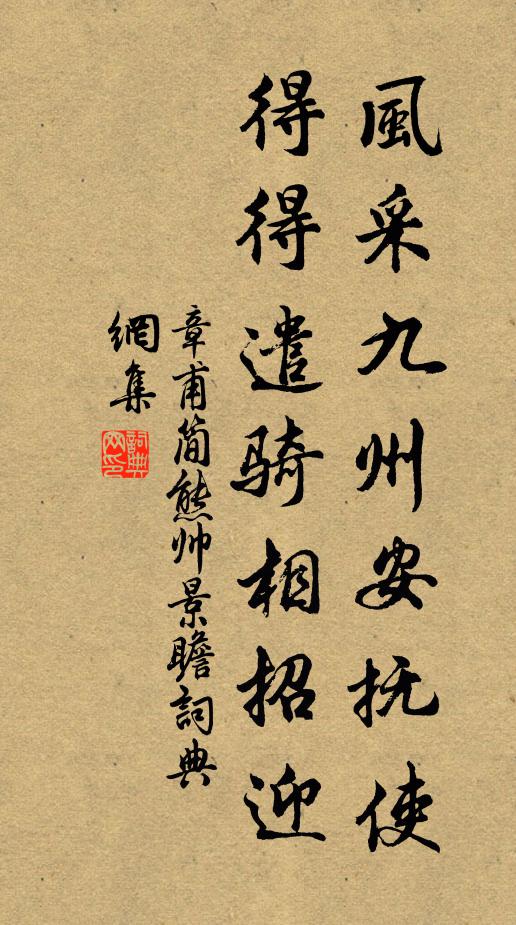 風采九州安抚使
得得遣骑相招迎
章甫简熊帅景瞻詞典
網集
詞典
网印